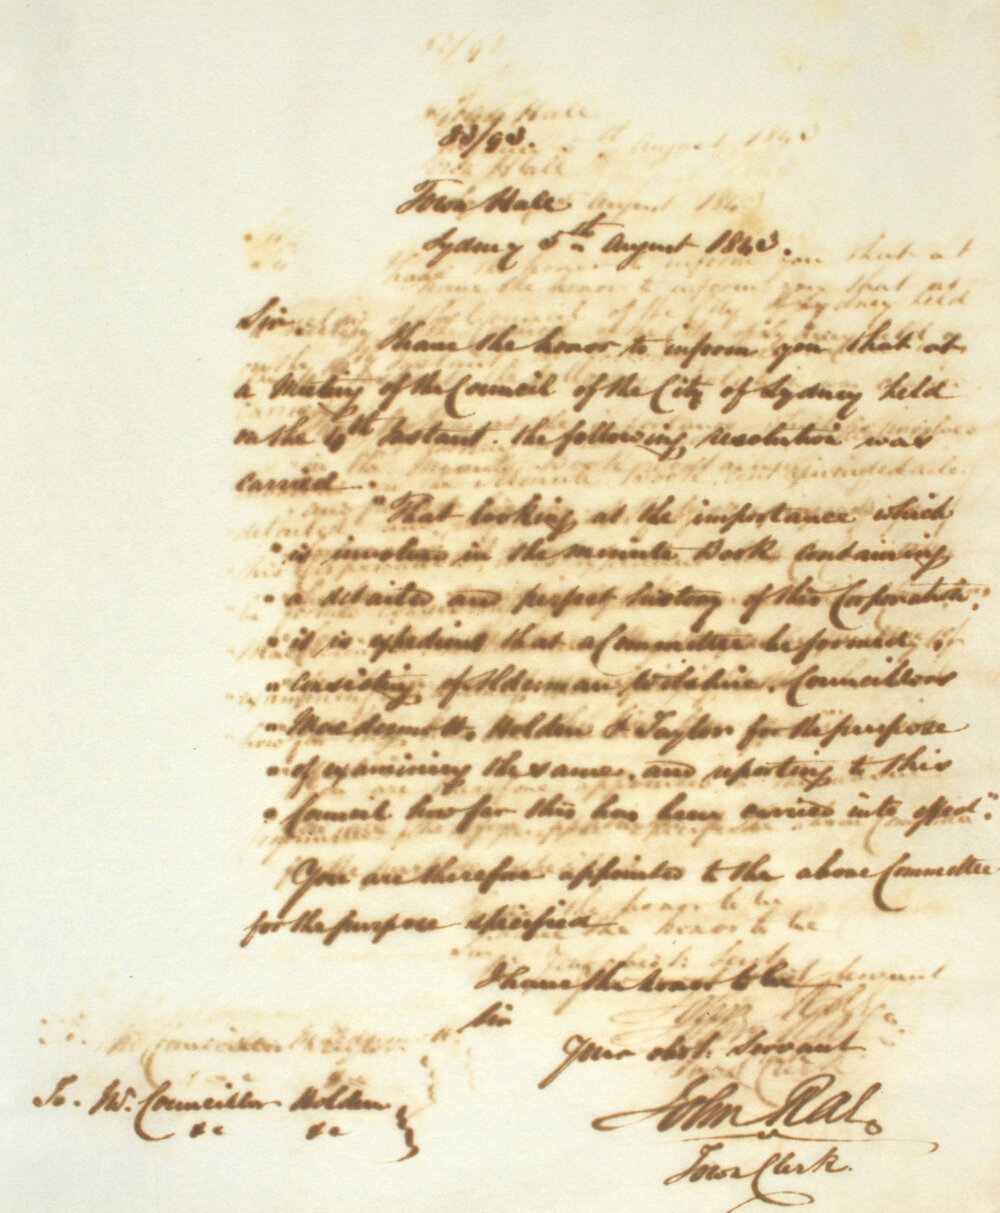 83/93.
Town Hall
Sydney 5th August 1843.
Sir,
I have the honor to inform you that at
a Meeting of the Council of the City of Sydney held
on the 4th Instant. the following resolution was
carried.
"That looking at the importance which
" is involved in the Minute Book containing
" a detailed and perfect history of this Corporation,
" it is expedient that a Committee be formed,
" consisting of Alderman Wilshire, Councillors
" Macdermott, Holden & Taylor for the purpose
" of examining the same, and reporting to this
" Council how far this has been carried into effect."
You are therefore appointed to the above Committee
for the purpose specified
I have the honor to be
Sir
Your obdt. Servant
John Rae
Town Clerk.
To. Mr. Councillor Holden
&c &c